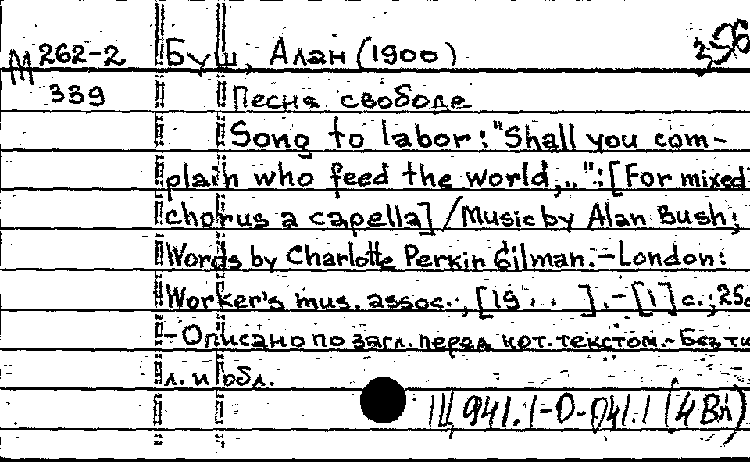 М 262-2 Буш, Алан (1900) 356
339 Песня свободе
Song to labor: "Shall you com-
plain who feed the world,..": [For mixed
chorus a capella] / Music by Alan Bush;
Words by Charlotte Perkin Gilman. - London:
Worker's mus. assoc., [19 . . ]. - [1] с.; 25с
- Описано по загл. перед нот. текстом. - Без ти
л. и обл.
Щ 941.1-0-041.1 (4Вл)